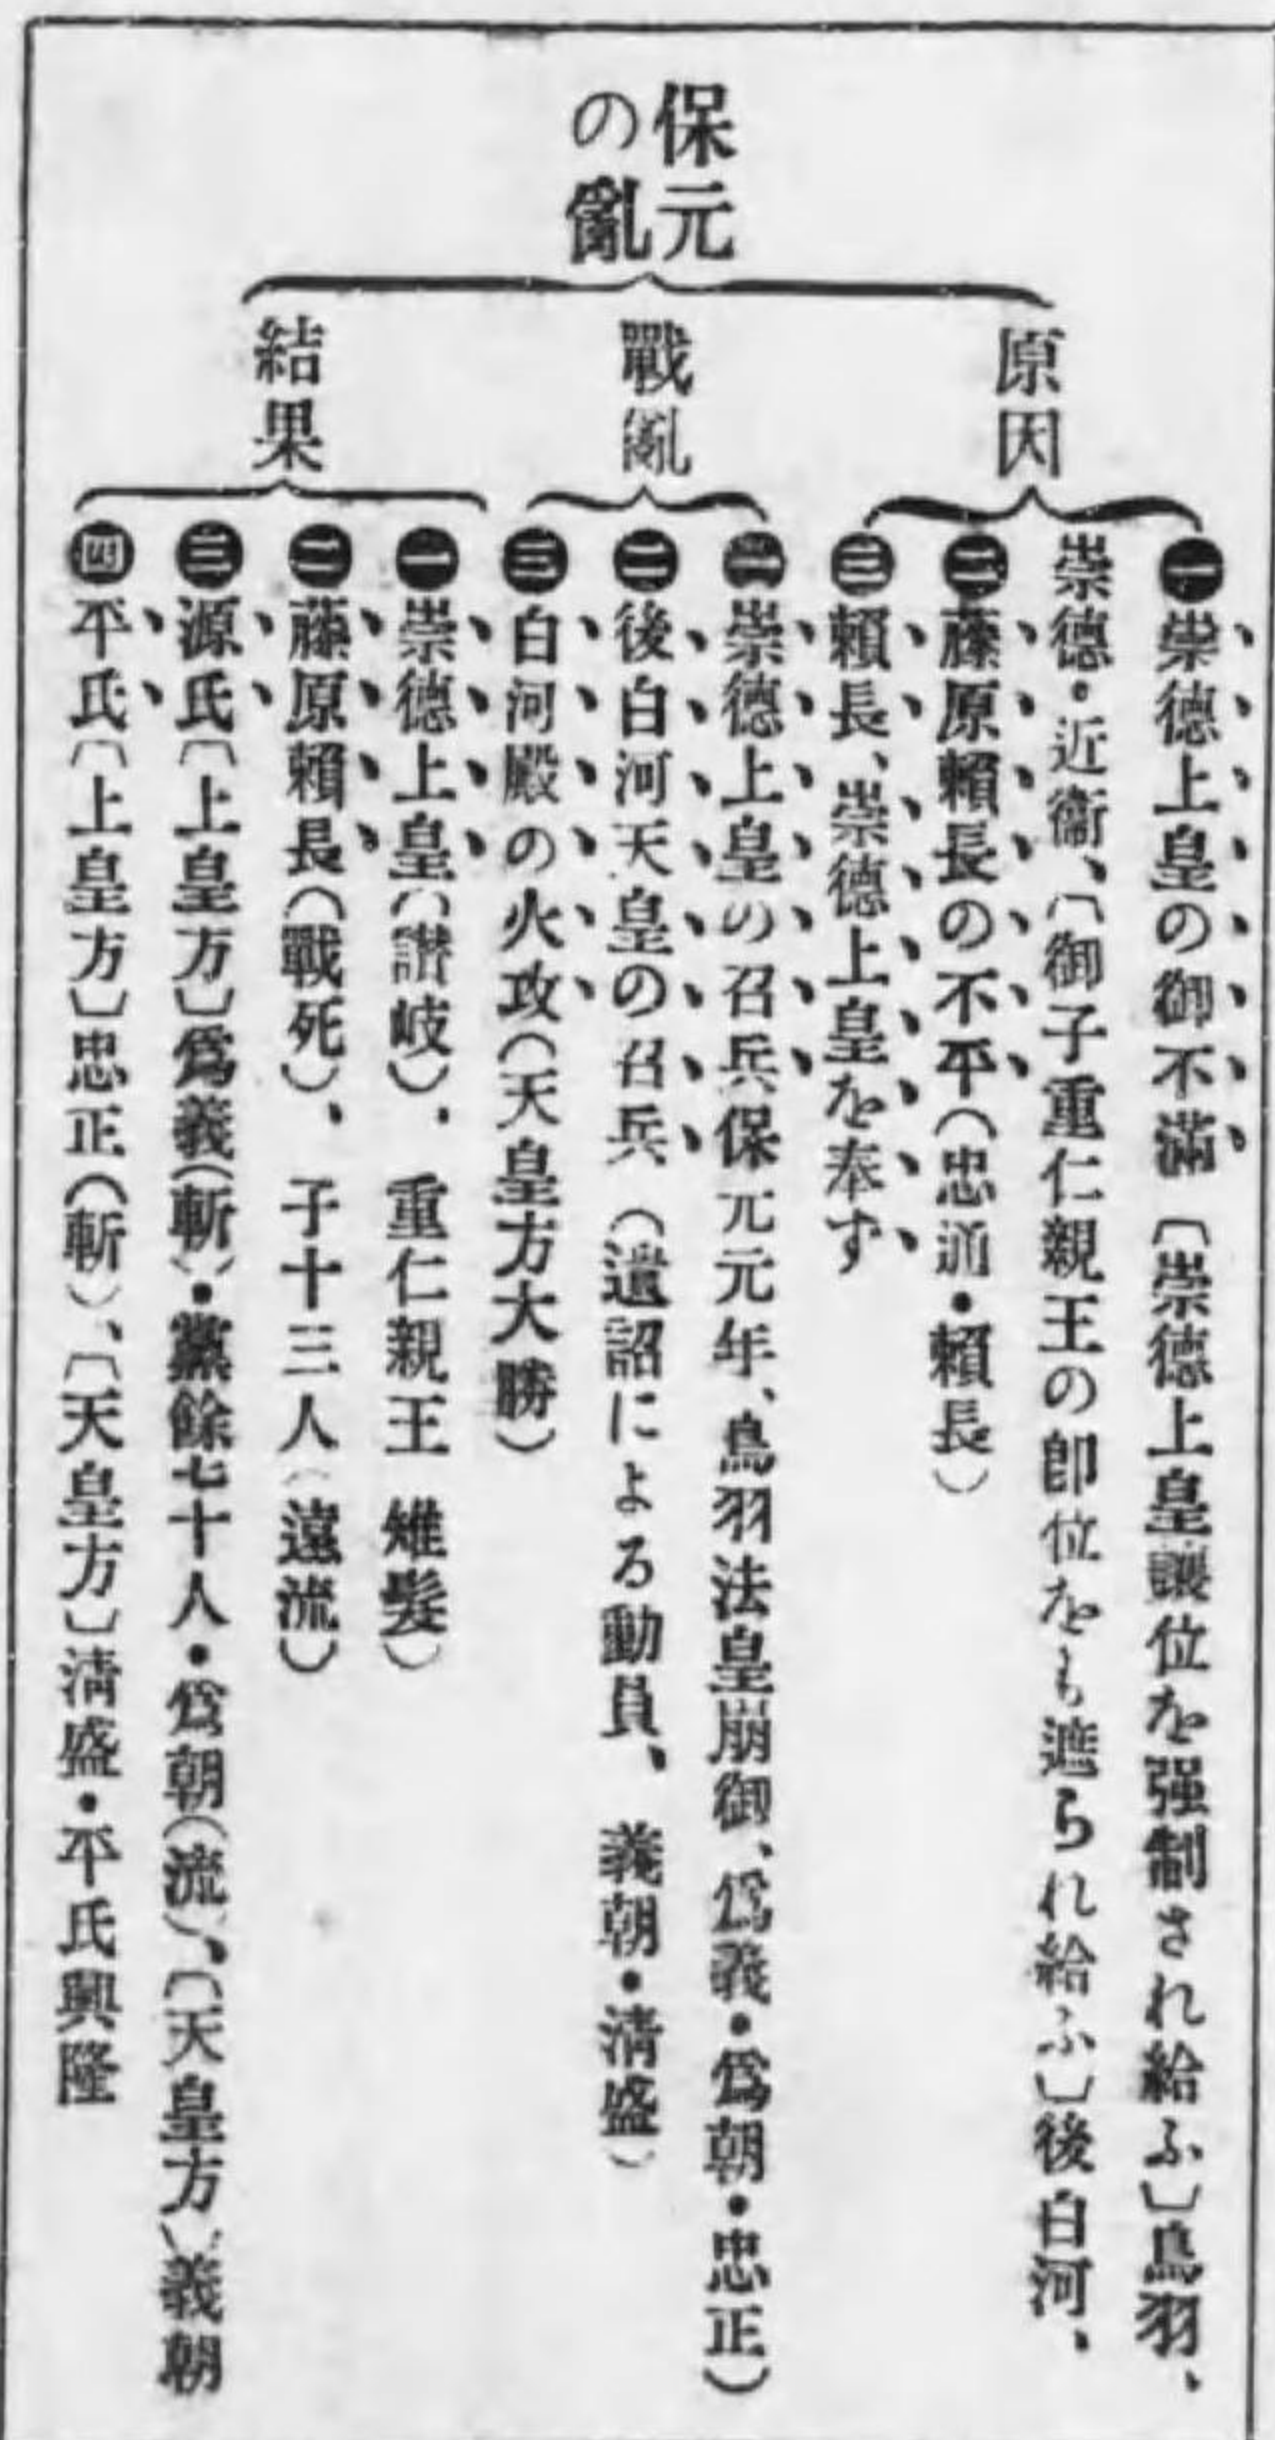 保元
の亂
原因
㊀崇德上皇の御不滿〔崇德上皇讓位を强制され給ふ〕鳥羽、
崇德・近衞、〔御子重仁親王の卽位をも遮られ給ふ〕後白河、
㊁藤原賴長の不平(忠通・賴長)
㊂賴長、崇德上皇を奉ず
戰亂
㊀崇德上皇の召兵保元元年、鳥羽法皇崩御、爲義・爲朝・忠正)
㊁後白河天皇の召兵(遺詔による動員、義朝・淸盛)
㊂白河殿の火攻(天皇方大勝)
結果
㊀崇德上皇(讃岐)、重仁親王 雉髮)
㊁藤原賴長(戰死)、子十三人(遠流)
㊂源氏〔上皇方〕爲義(斬)・黨餘七十人・爲朝(流)、〔天皇方〕義朝
㊃平氏〔上皇方〕忠正(斬)、〔天皇方〕淸盛・平氏興隆